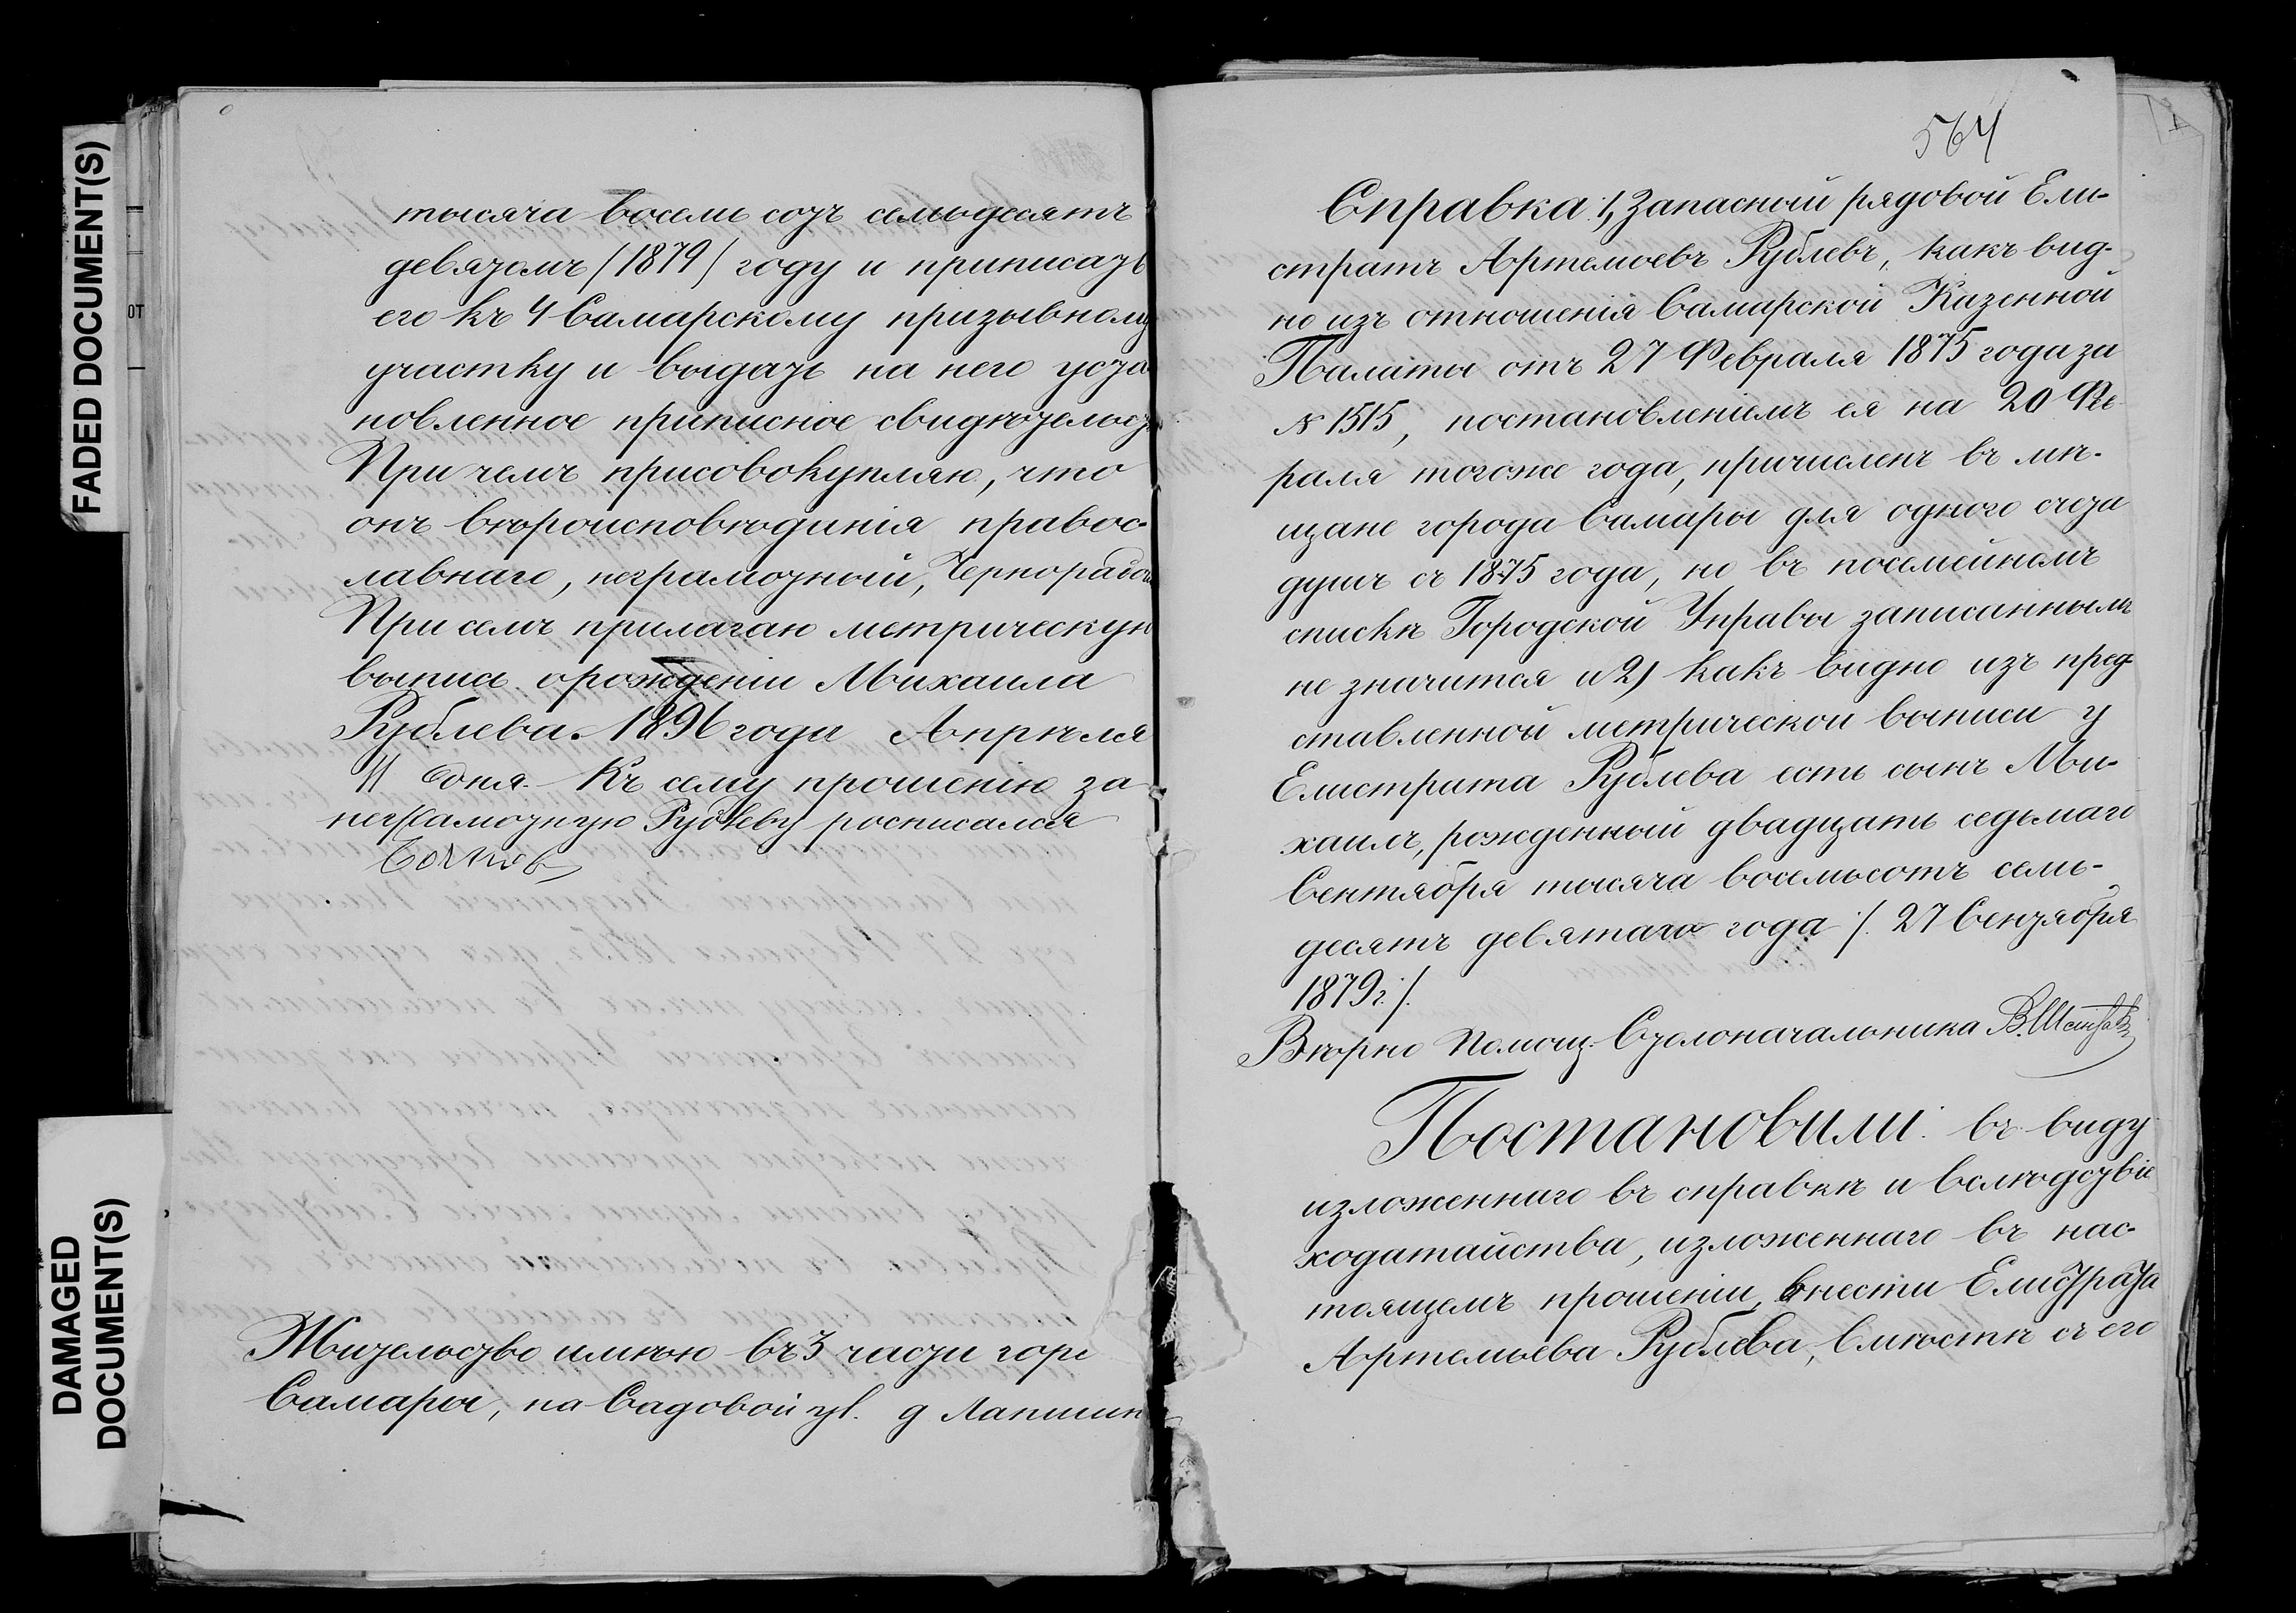 FADED DOCUMENT(S)
DAMAGED
DOCUMENT(S)
ОТ
тысяча восемь сотъ семьдесятъ
девятомъ (1879) году и приписать
его къ 4 Самарскому призывному
участку и выдать на него уста
новленное приписное свидѣтельст
При чемъ присовокупляю, что
онъ вѣроисповѣдинія правос-
лавнаго, неграмотный, Чернорабоч
При семъ прилагаю метрическую
выпись о рожденіи Михаила
Рублева. 1896 года Апрѣля
11 дня. Къ сему прошенію за
неграмотную Рублеву росписался
Жительство имѣю въ 3 части горо
Самары, на Садовой ул. д Лапшин
564
Справка: 1, Запасной рядовой Ели-
стратъ Артемьевъ Рублевъ, какъ вид-
но изъ отношенія Самарской Казенной
Палаты отъ 27 Февраля 1875 года за
№ 1515, постановленіемъ ея на 20 Фев
раля тогоже года, причисленъ въ мѣ-
щане города Самары для одного счета
душъ съ 1875 года, но въ посемейномъ
спискѣ Городской Управы записаннымъ
не значится и 2) какъ видно изъ пред
ставленной метрической выписи у
Елистрата Рублева есть сынъ Ми-
хаилъ, рожденный двадцать седьмаго
Сентября тысяча восемьсотъ семь-
десятъ девятаго года /. 27 Сентября
1879 г. /.
Вѣрно Помощ. Столоначальника
Постановили: въ виду
изложеннаго въ справкѣ и вслѣдствіе
ходатайства, изложеннаго въ нас-
тоящемъ прошеніи, внести Елистрата
Артемьева Рублева, вмѣстѣ съ его